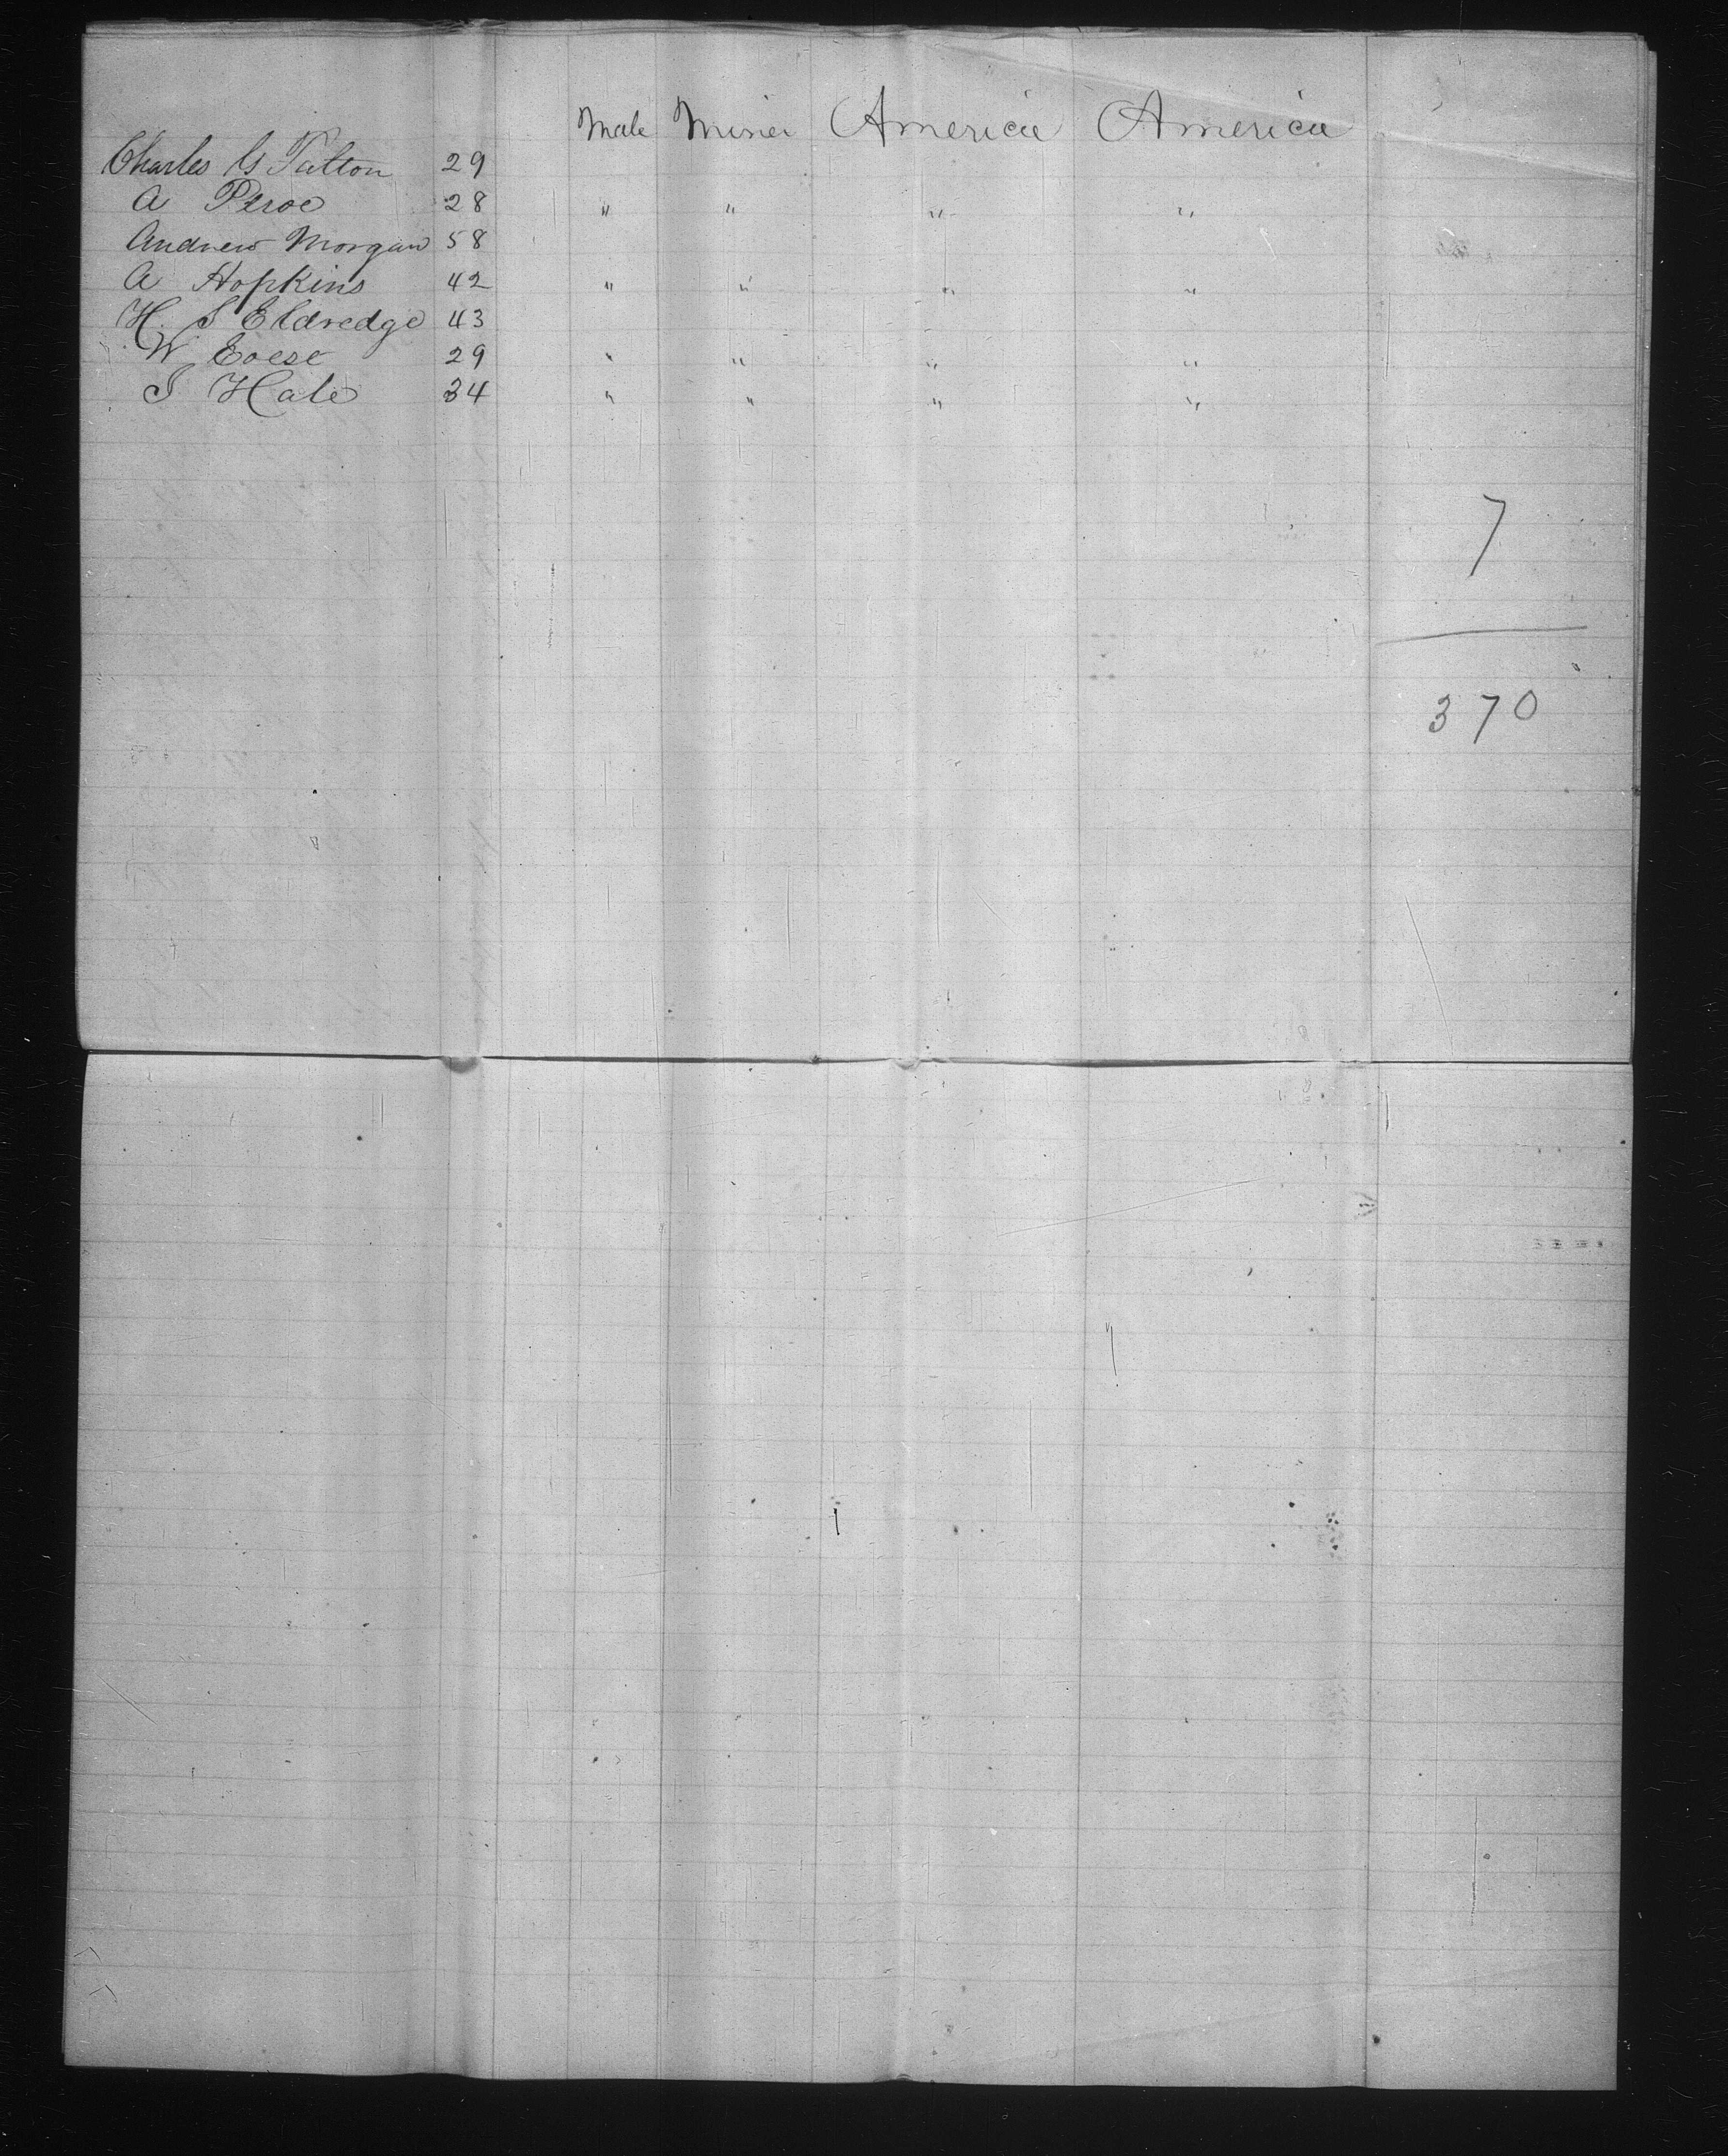 Male Miner America America
Charles G Tatton 29
A Peroe 28 " " " "
Andrew Morgan 58
A Hopkins 42 " " " "
H. S Eldredge 43
W 29 " " " "
J Hale 34 " " " "
7
370